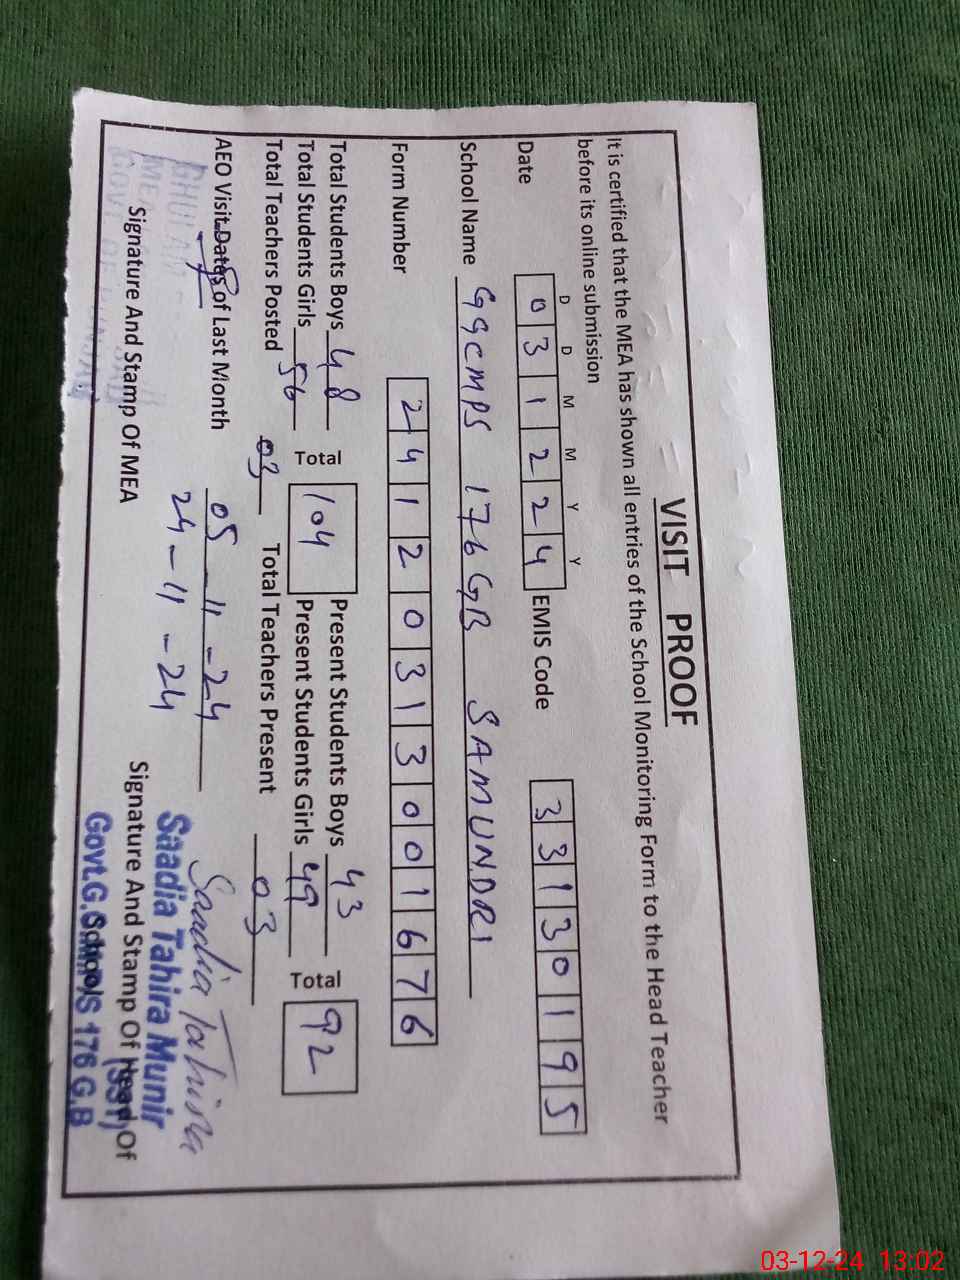 VISIT PROOF
It is certified that the MEA has shown all entries of the School Monitoring Form to the Head Teacher
before its online submission
D D M M Y Y
Date 0 3 1 2 2 4 EMIS Code 3 3 1 3 0 1 9 5
School Name GGCMPS 176 GB SAMUNDRI
Form Number 2 4 1 2 0 3 1 3 0 0 1 6 7 6
Total Students Boys 48 Present Students Boys 43
Total 104 Total 92
Total Students Girls 56 Present Students Girls 49
Total Teachers Posted 03 Total Teachers Present 03
AEO Visit Dates of Last Month 05-11-24
24-11-24
Saadia Tahira
Saadia Tahira Munir
(SST)
Signature And Stamp Of MEA Signature And Stamp Of Head Of
School
Govt.G. 176 G.B
GHULAM
MEA
GOVT OF PUNJAB
03-12-24 13:02